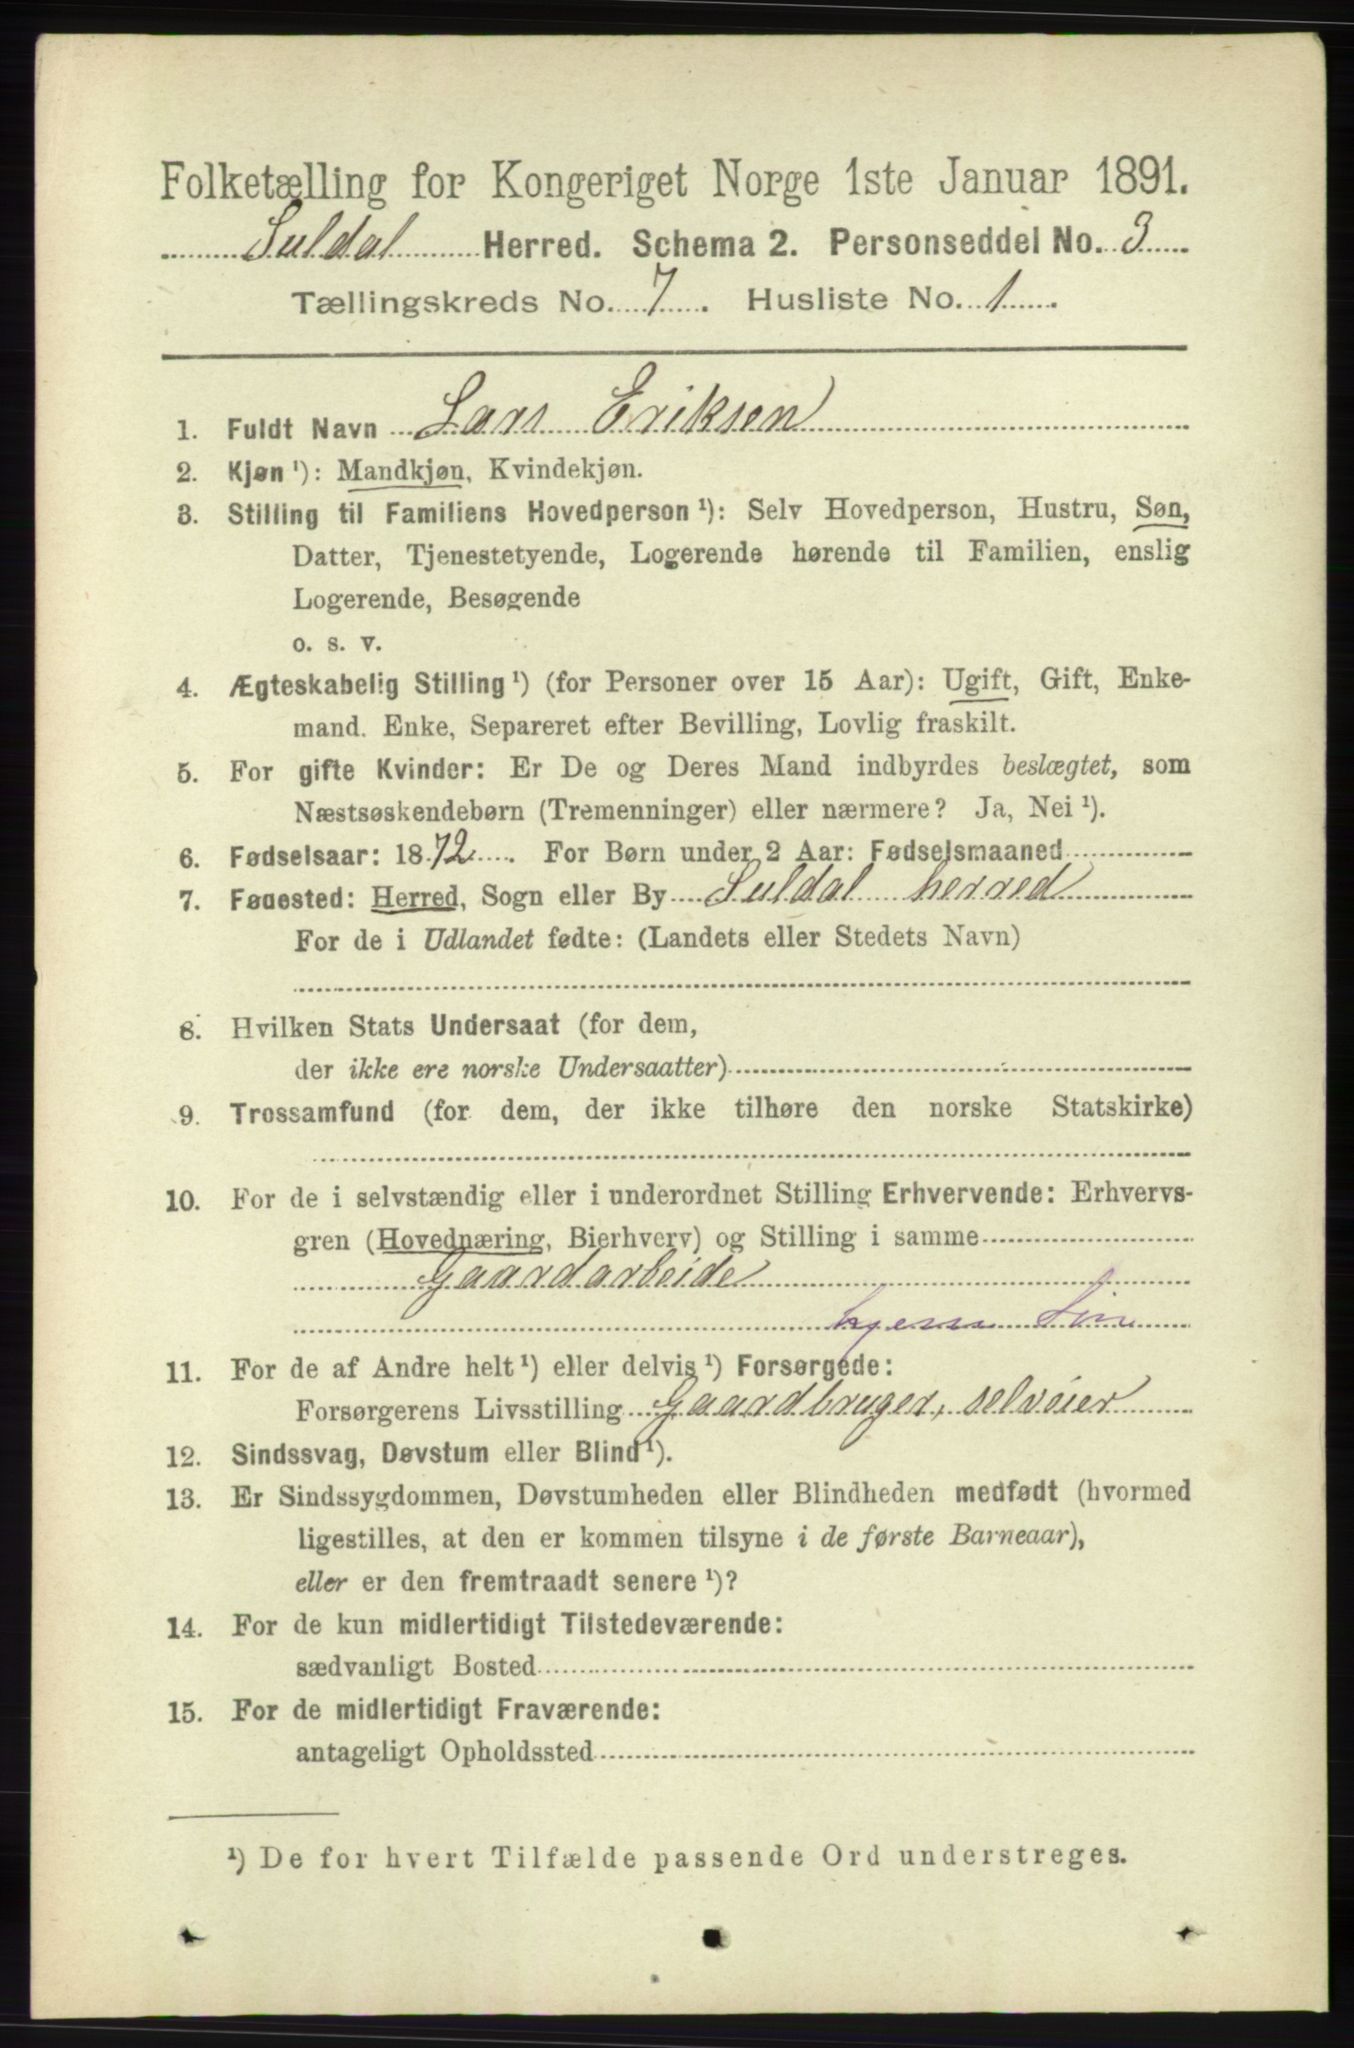 Folketælling for Kongeriget Norge 1ste Januar 1891.
Suldal Herred. Schema 2. Personseddel No. 3
Tællingskreds No. 7. Husliste No. 1
1. Fuldt Navn Lars Eriksen
2. Kjøn ¹): Mandkjøn, Kvindekjøn.
3. Stilling til Familiens Hovedperson ¹): Selv Hovedperson, Hustru, Søn,
Datter, Tjenestetyende, Logerende hørende til Familien, enslig
Logerende, Besøgende
o. s. v.
4. Ægteskabelig Stilling ¹) (for Personer over 15 Aar): Ugift, Gift, Enke-
mand. Enke, Separeret efter Bevilling, Lovlig fraskilt.
5. For gifte Kvinder: Er De og Deres Mand indbyrdes beslægtet, som
Næstsøskendebørn (Tremenninger) eller nærmere? Ja, Nei ¹).
6. Fødselsaar: 1872. For Børn under 2 Aar: Fødselsmaaned
7. Fødested: Herred, Sogn eller By Suldal herred
For de i Udlandet fødte: (Landets eller Stedets Navn)
8. Hvilken Stats Undersaat (for dem,
der ikke ere norske Undersaatter)
9. Trossamfund (for dem, der ikke tilhøre den norske Statskirke)
10. For de i selvstændig eller i underordnet Stilling Erhvervende: Erhvervs-
gren (Hovednæring, Bierhverv) og Stilling i samme
Gaardarbeide
hjem
11. For de af Andre helt ¹) eller delvis ¹) Forsørgede:
Forsørgerens Livsstilling Gaardbruger, selveier
12. Sindssvag, Døvstum eller Blind ¹).
13. Er Sindssygdommen, Døvstumheden eller Blindheden medfødt (hvormed
ligestilles, at den er kommen tilsyne i de første Barneaar),
eller er den fremtraadt senere ¹)?
14. For de kun midlertidigt Tilstedeværende:
sædvanligt Bosted
15. For de midlertidigt Fraværende:
antageligt Opholdssted
¹) De for hvert Tilfælde passende Ord understreges.